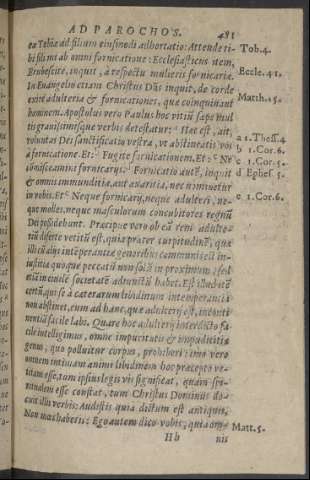 AD PAROCHOS. 481
ea Tobiæ ad filium eiusmodi adhortatio: Attende ti-
bi fili mi ab omni fornicatione: Ecclesiasticus item,
Erubescite, inquit, à respectu mulieris fornicariæ.
In Euangelio etiam Christus Dñs inquit, de corde
exire adulteria & fornicationes, quæ coinquinant
hominem. Apostolus vero Paulus hoc vitiũ sæpe mul
tis grauissimisque verbis detestatur: Hæc est, ait,
voluntas Dei sanctificatio vestra, vt abstineatis vos
à fornicatione. Et: Fugite fornicationem. Et: Ne
cõmisceamini fornicarijs: Fornicatio autẽ, inquit
& omnis immunditia, aut auaritia, nec nominetur
in vobis. Et: Neque fornicarij, neque adulteri, ne-
que molles, neque masculorum concubitores regnũ
Dei possidebunt. Præcipue vero ob eã rem adulte-
riũ diserte vetitũ est, quia præter turpitudinẽ, quæ
illi cũ alijs intẽperantiæ generibus communis est in-
iustitiæ quoque peccatũ non solũ in proximum, sed
etiã in ciuilẽ societatẽ adiunctũ habet. Est illud etiã
certũ, qui se à cæterarum libidinum intemperantia
non abstinet, eum ad hanc, quæ adulterij est, inconti
nentiã facile labi. Quare hoc adulterij interdicto fa
cile intelligimus, omne impuritatis & impudicitiæ
genus, quo polluitur corpus, prohiberi: imo vero
omnem intimam animi libidinem hoc præcepto ve-
titam esse, tum ipsius legis vis significat, quam spi-
ritualem esse constat, tum Christus Dominus do-
cuit illis verbis: Audistis quia dictum est antiquis,
Non mœchaberis: Ego autem dico vobis, quia om-
Hb nis
Tob. 4.
Eccle. 41.
Matth. 15.
a 1. Thess. 4
b 1. Cor. 6.
c 1. Cor. 5.
d Ephes. 5.
e 1. Cor. 6.
Matt. 5.